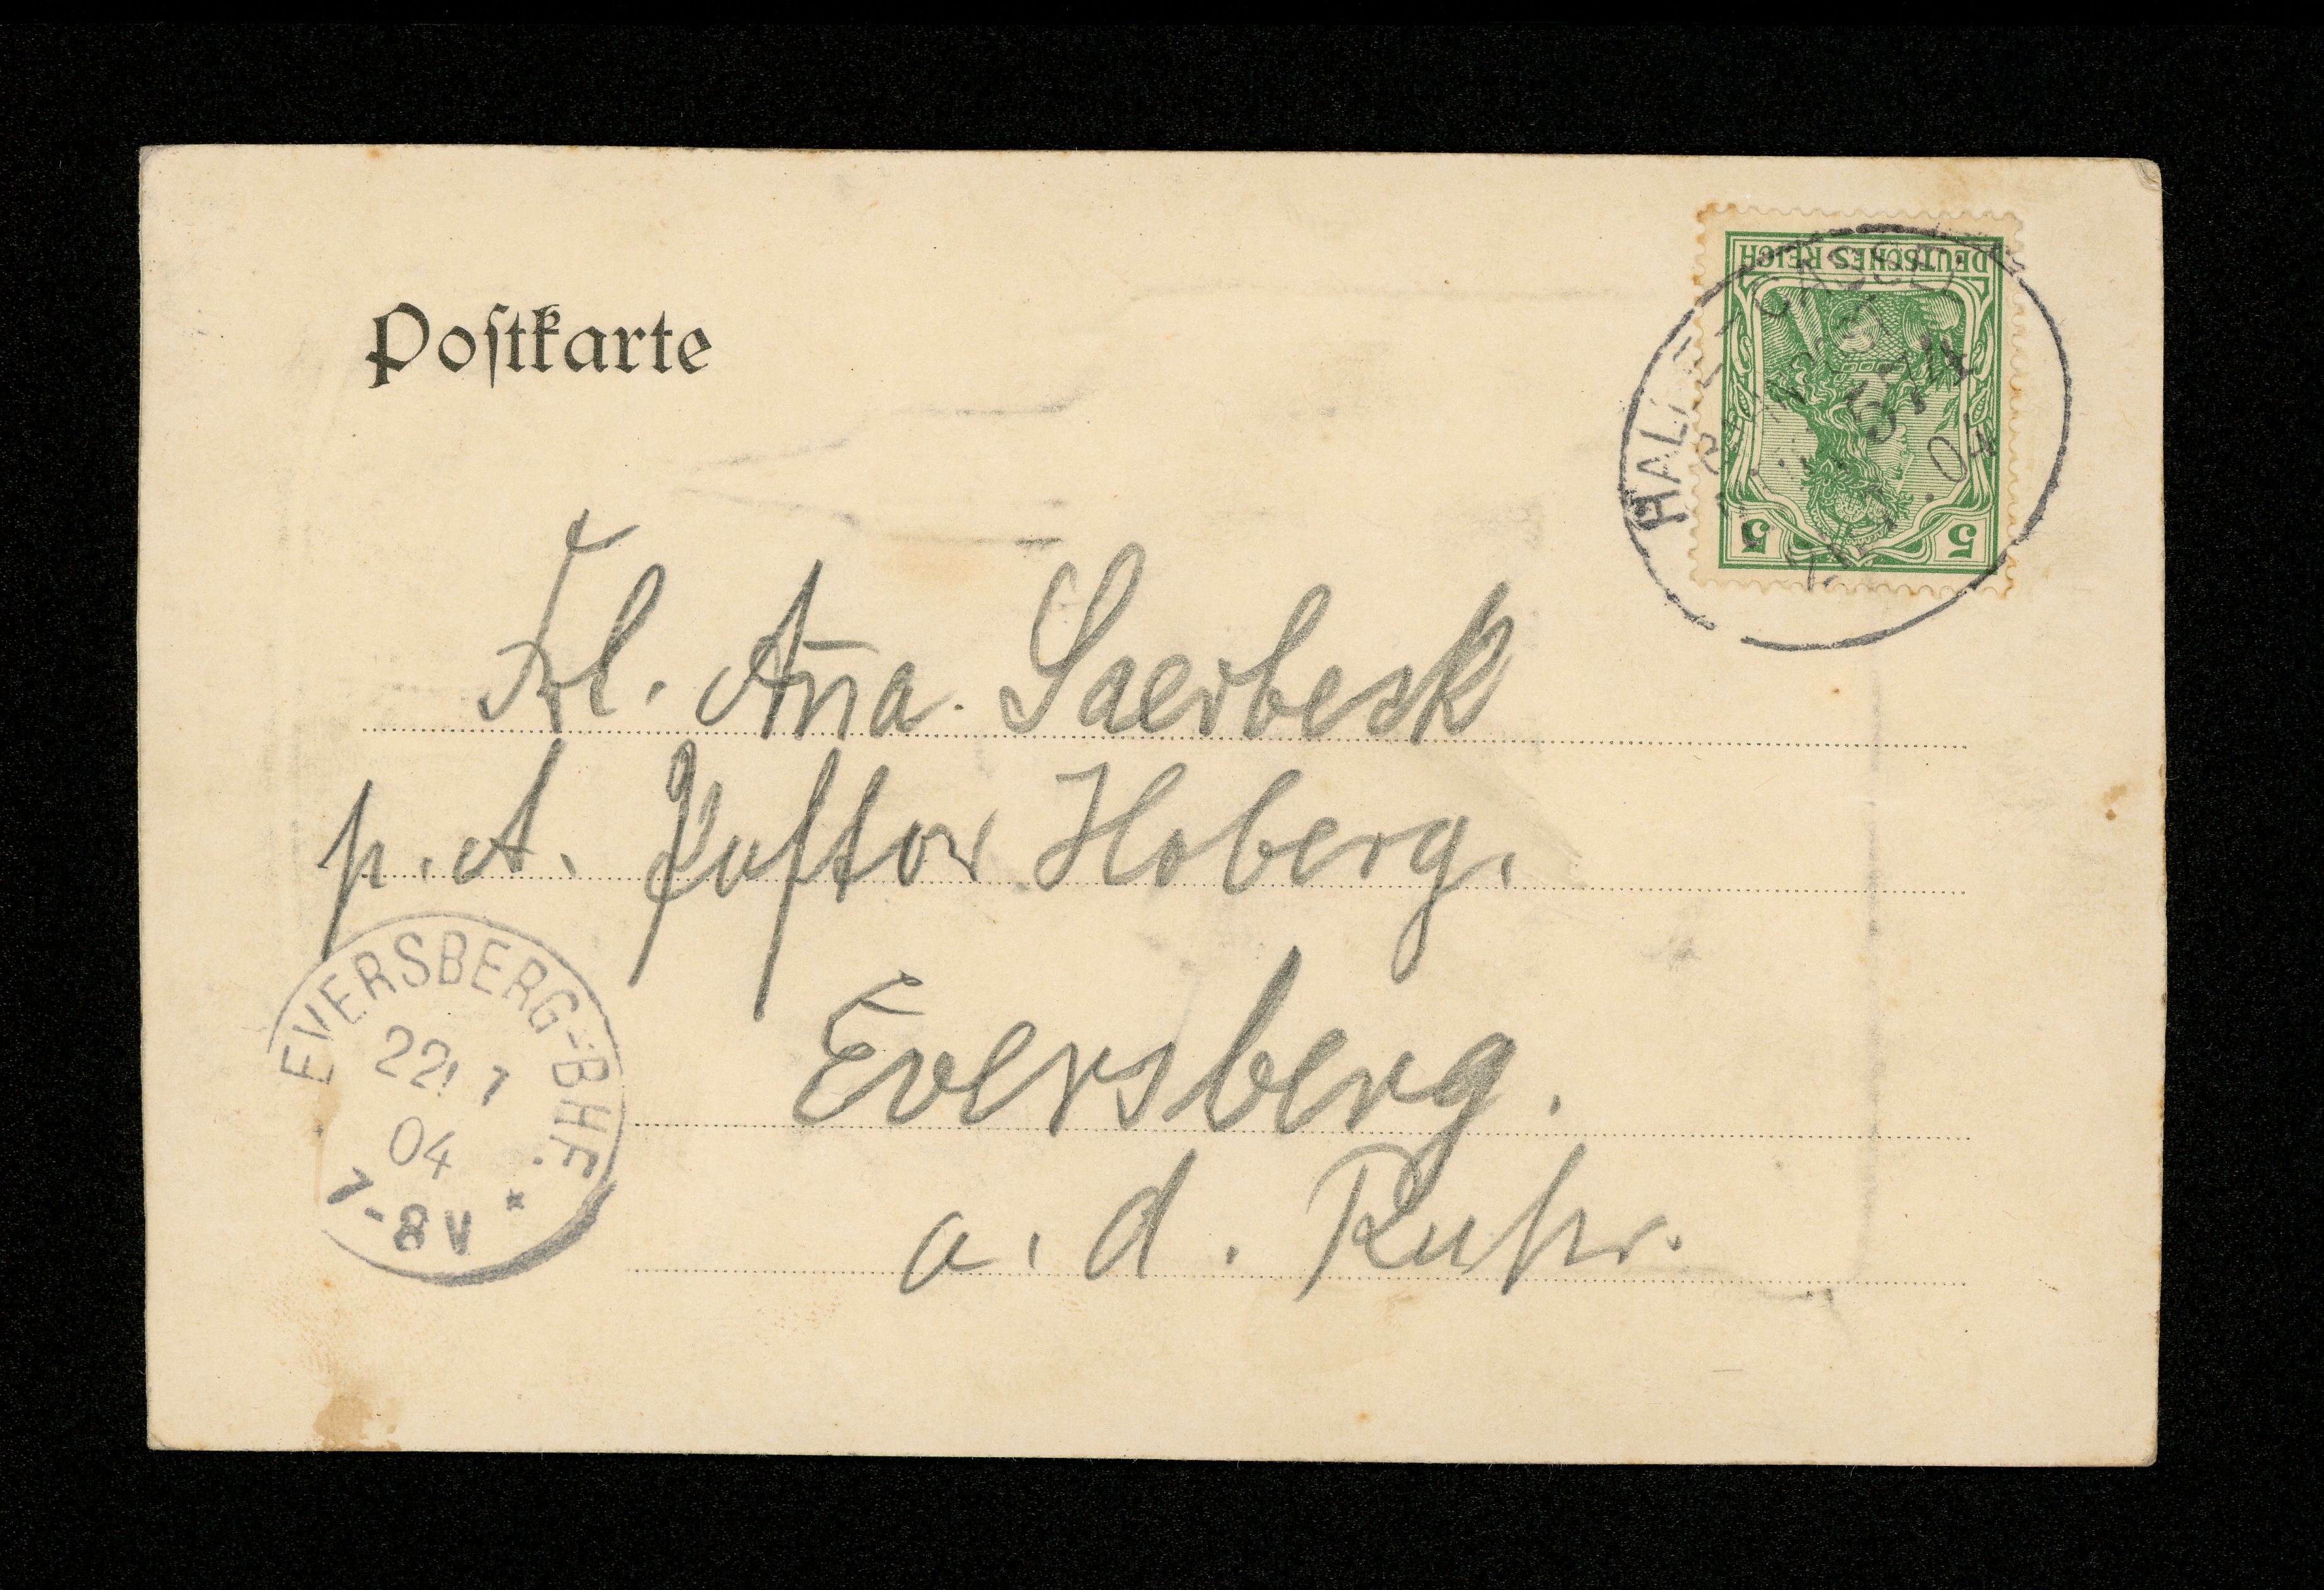 Postkarte
DEUTSCHES REICH
5 5
HALLE
04
Frl. Anna Saerbeck
p. A. Pastor Hoberg.
Eversberg.
a. d. Ruhr.
EVERSBERG-BHF.
22 7
04
7-8V
*